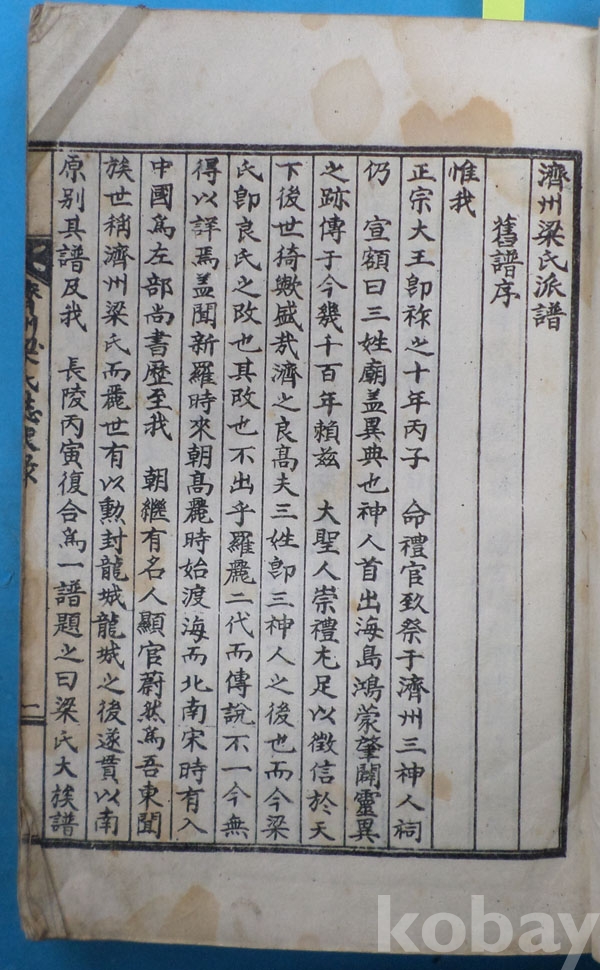 濟州梁氏派譜
舊譜序
惟我
正宗大王卽祚之十年丙子 命禮官致祭于濟州三神人祠
仍 宣額曰三姓廟盖異典也神人首出海島鴻蒙肇闢靈異
之跡傳于今幾千百年賴玆 大聖人崇禮尤足以徵信於天
下後世猗歟盛哉濟之良高夫三姓卽三神人之後也而今梁
氏卽良氏之改也其改也不出乎羅麗二代而傳說不一今無
得以詳焉盖聞新羅時來朝高麗時始渡海而北南宋時有入
中國爲左部尙書歷至我 朝繼有名人顯官蔚然爲吾東聞
族世稱濟州梁氏而麗世有以勳封龍城龍城之後遂貫以南
原别其譜及我 長陵丙寅復合爲一譜題之曰梁氏大族譜
濟州梁氏誌
一
kobay